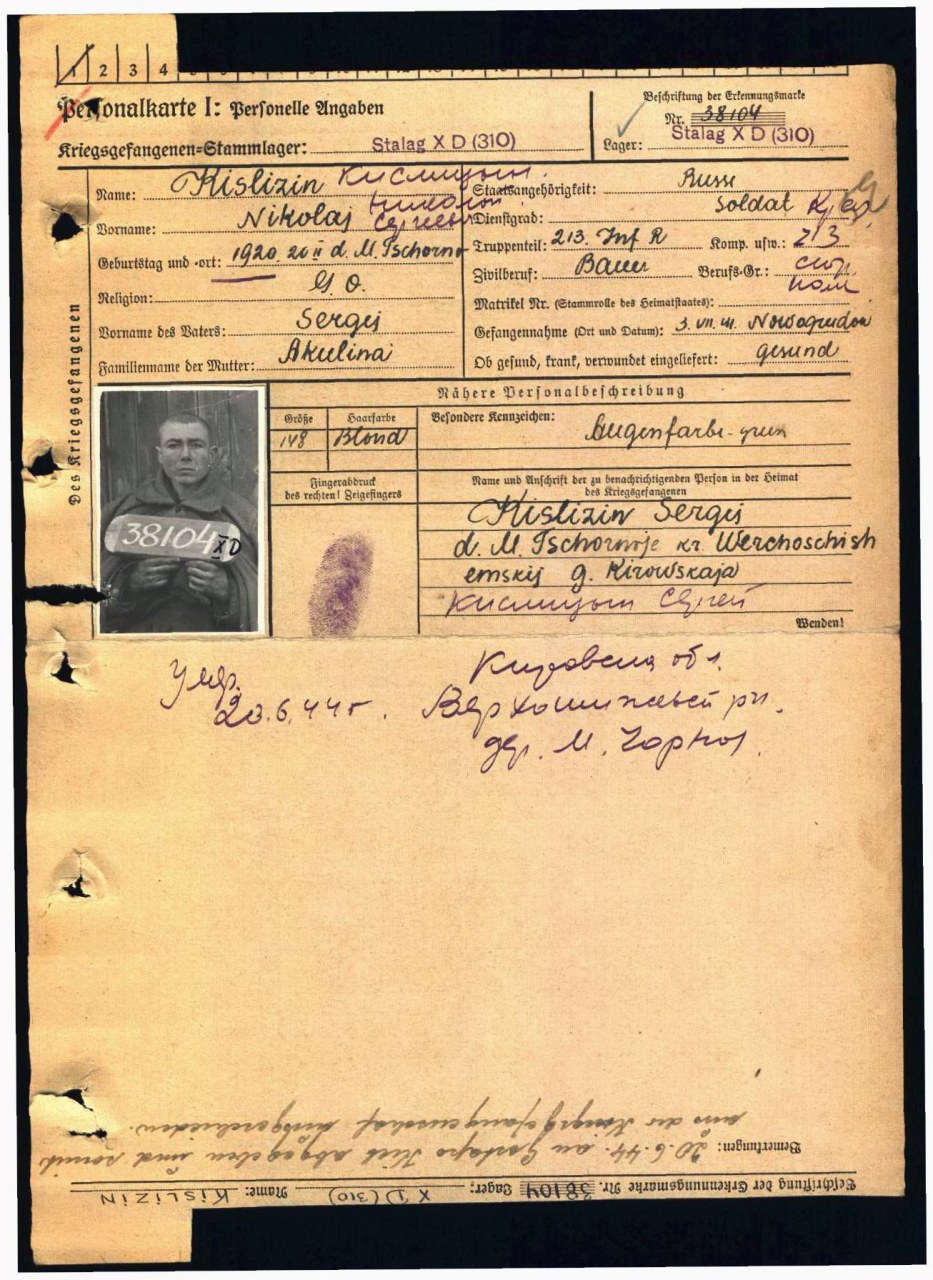 1 2 3 4
Personalkarte I: Personelle Angaben
Kriegsgefangenen=Stammlager: Stalag X D (310)
Beschriftung der Erkennungsmarke
Nr. 38104
Lager: Stalag X D (310)
Des Kriegsgefangenen
Name: Kislizin Кислицын
Vorname: Nikolaj Николай Сергеев
Geburtstag und =ort: 1920. 20 II d. M. Tschorno
Religion: G. O.
Vorname des Vaters: Sergej
Familienname der Mutter: Akulina
Staatsangehörigkeit: Russe
Dienstgrad: Soldat
Truppenteil: 213. Inf R Komp. usw.: 213
Zivilberuf: Bauer Berufs=Gr.:
Matrikel Nr. (Stammrolle des Heimatstaates):
Gefangennahme (Ort und Datum): 3. VII. 41. Nowogrudok
Ob gesund, krank, verwundet eingeliefert: gesund
Nähere Personalbeschreibung
Größe Haarfarbe
148 Blond
Besondere Kennzeichen: Augenfarbe - grün
Fingerabdruck
des rechten! Zeigefingers
Name und Anschrift der zu benachrichtigenden Person in der Heimat
des Kriegsgefangenen
Kislizin Sergej
d. M. Tschornije kr. Werchoschish
emskij g. Kirowskaja
Кислицын Сергей
Wenden!
38104 X D
Умер. 20.6.44 г.
Кировская обл.
Верхошижемский рн.
дер. М. Чорной
Bemerkungen: 20.6.44. an Gestapo Kiel abgegeben und somit
aus der Kriegsgefangenschaft ausgeschieden.
Beschriftung der Erkennungsmarke Nr. 38104 Lager: X D (310) Name: KISLIZIN